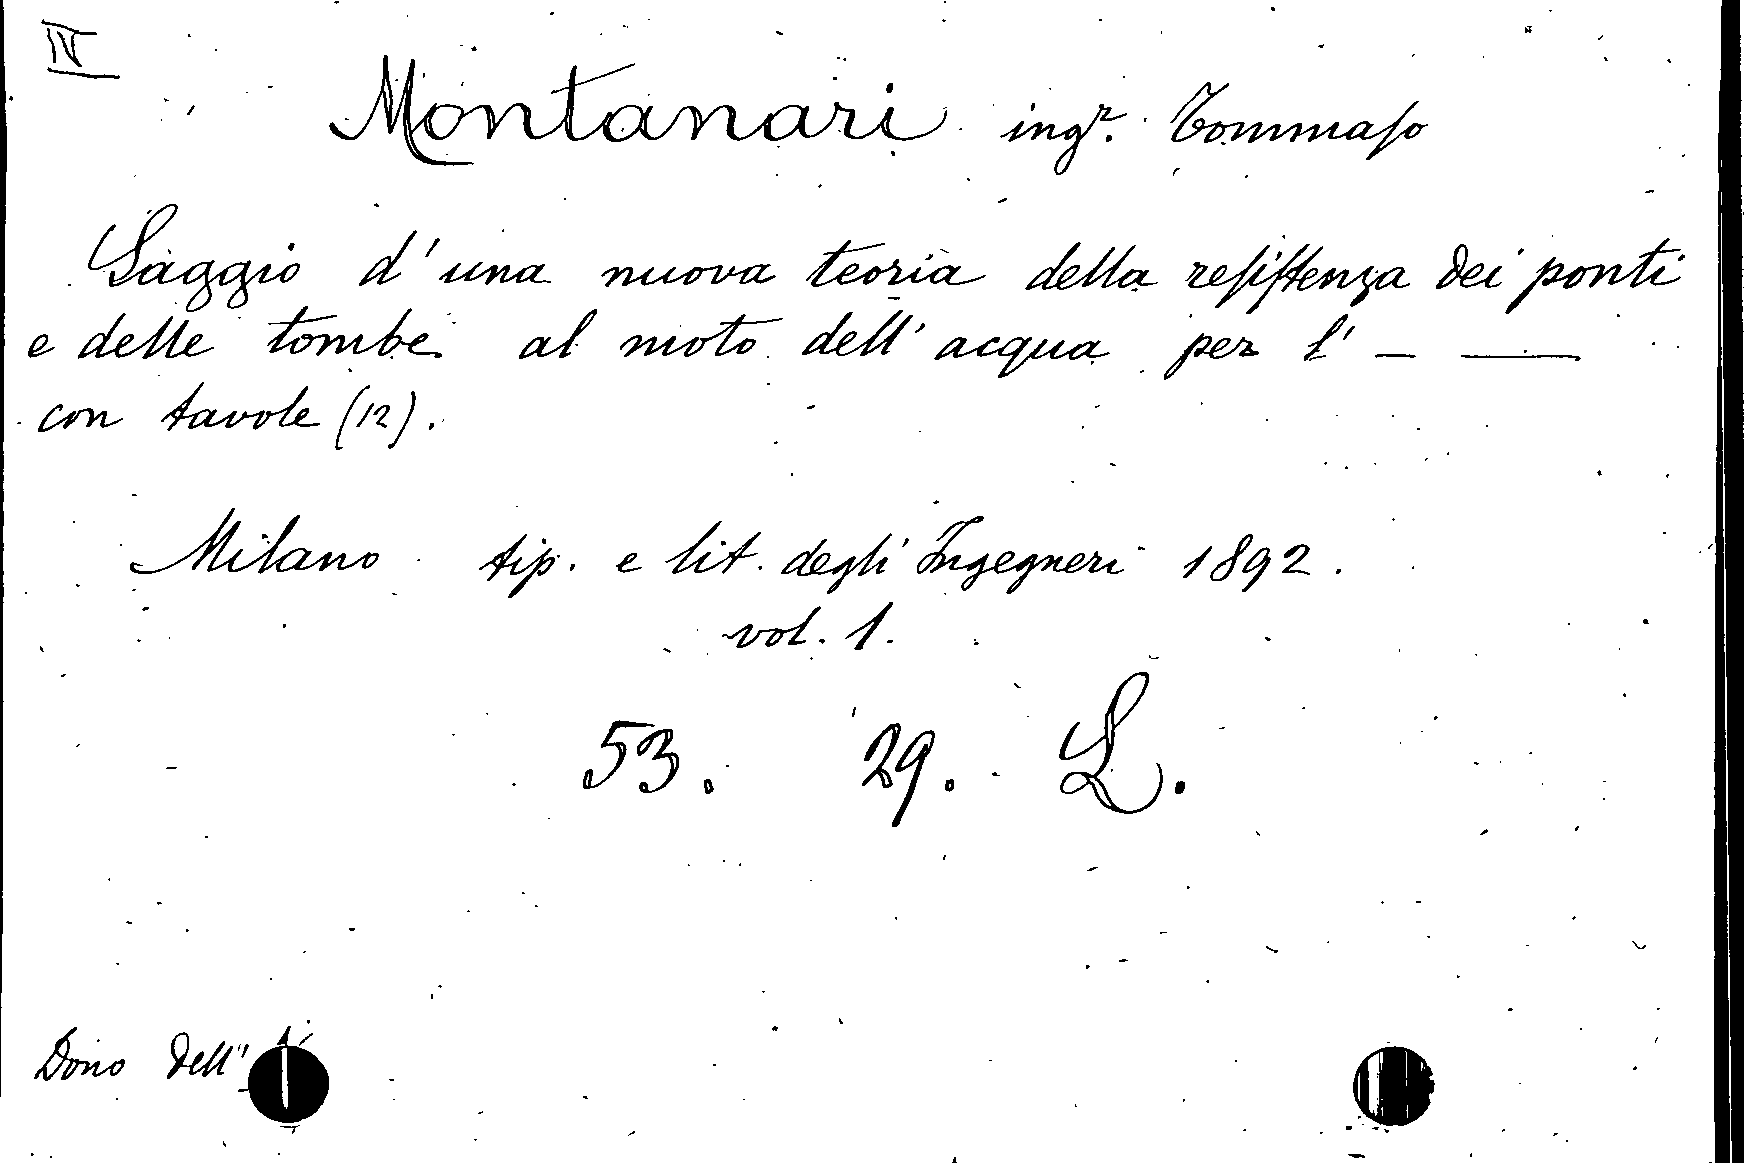 IV
Montanari ingr. Tommaso
Saggio d'una nuova teoria della resistenza dei ponti
e delle tombe al moto dell'acqua per l' — ——
con tavole (12).
Milano tip. e lit. degli Ingegneri 1892.
vol. 1.
53. 29. L.
Dono dell'